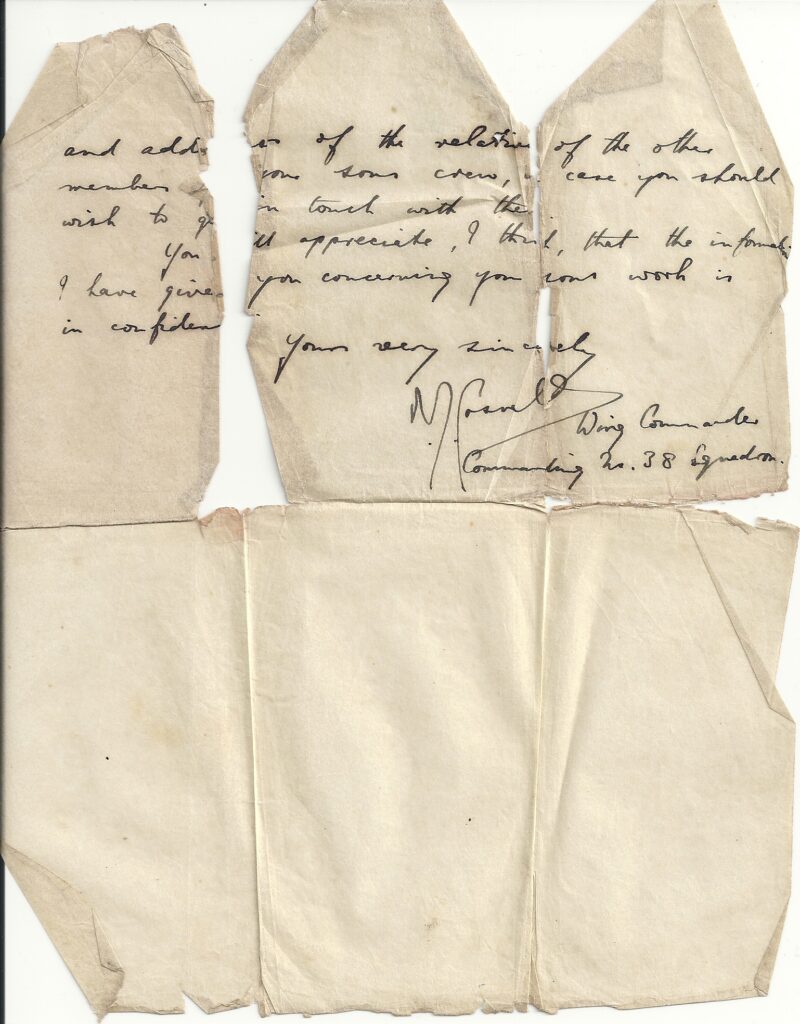 and add es of the relatives of the other
members your sons crew, in case you should
wish to ge in touch with the
You ill appreciate, I think, that the informati
I have give you concerning you sons work is
in confiden
Yours very sincerely
Wing Commander
Commanding No. 38 Squadron.